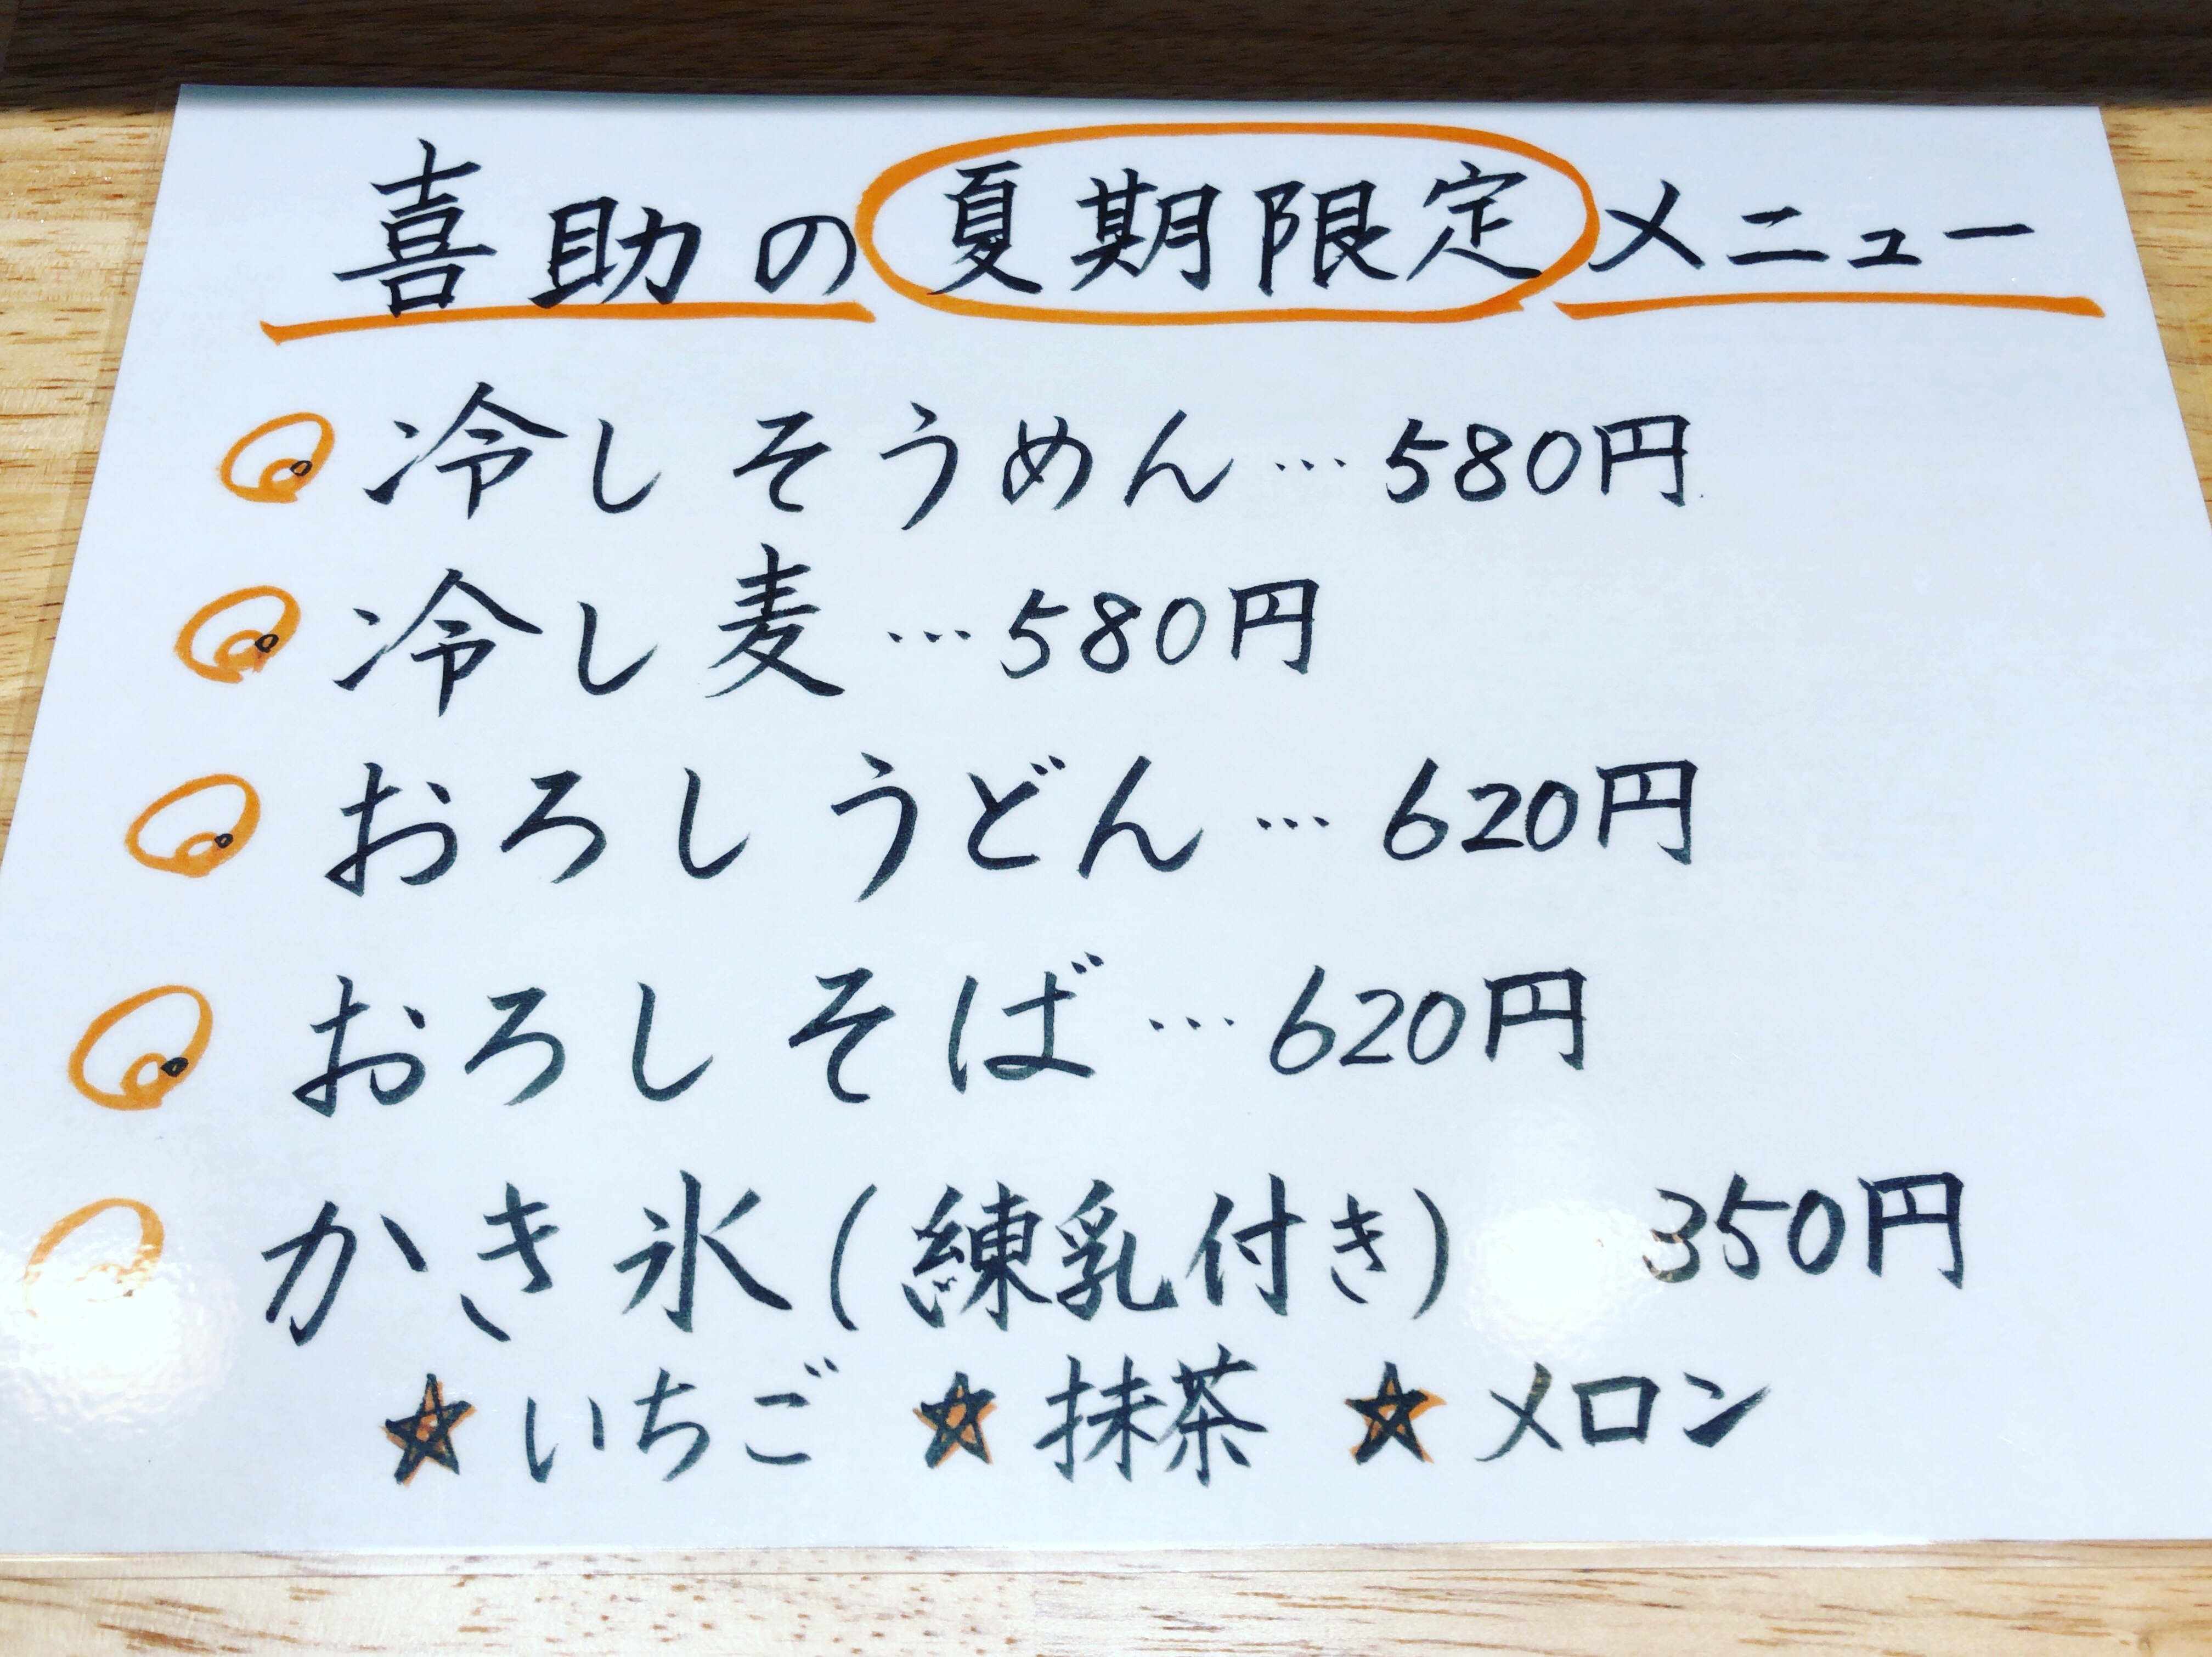 喜助の夏期限定メニュー
冷しそうめん…580円
冷し麦…580円
おろしうどん…620円
おろしそば…620円
かき氷(練乳付き) 350円
☆いちご ☆抹茶 ☆メロン